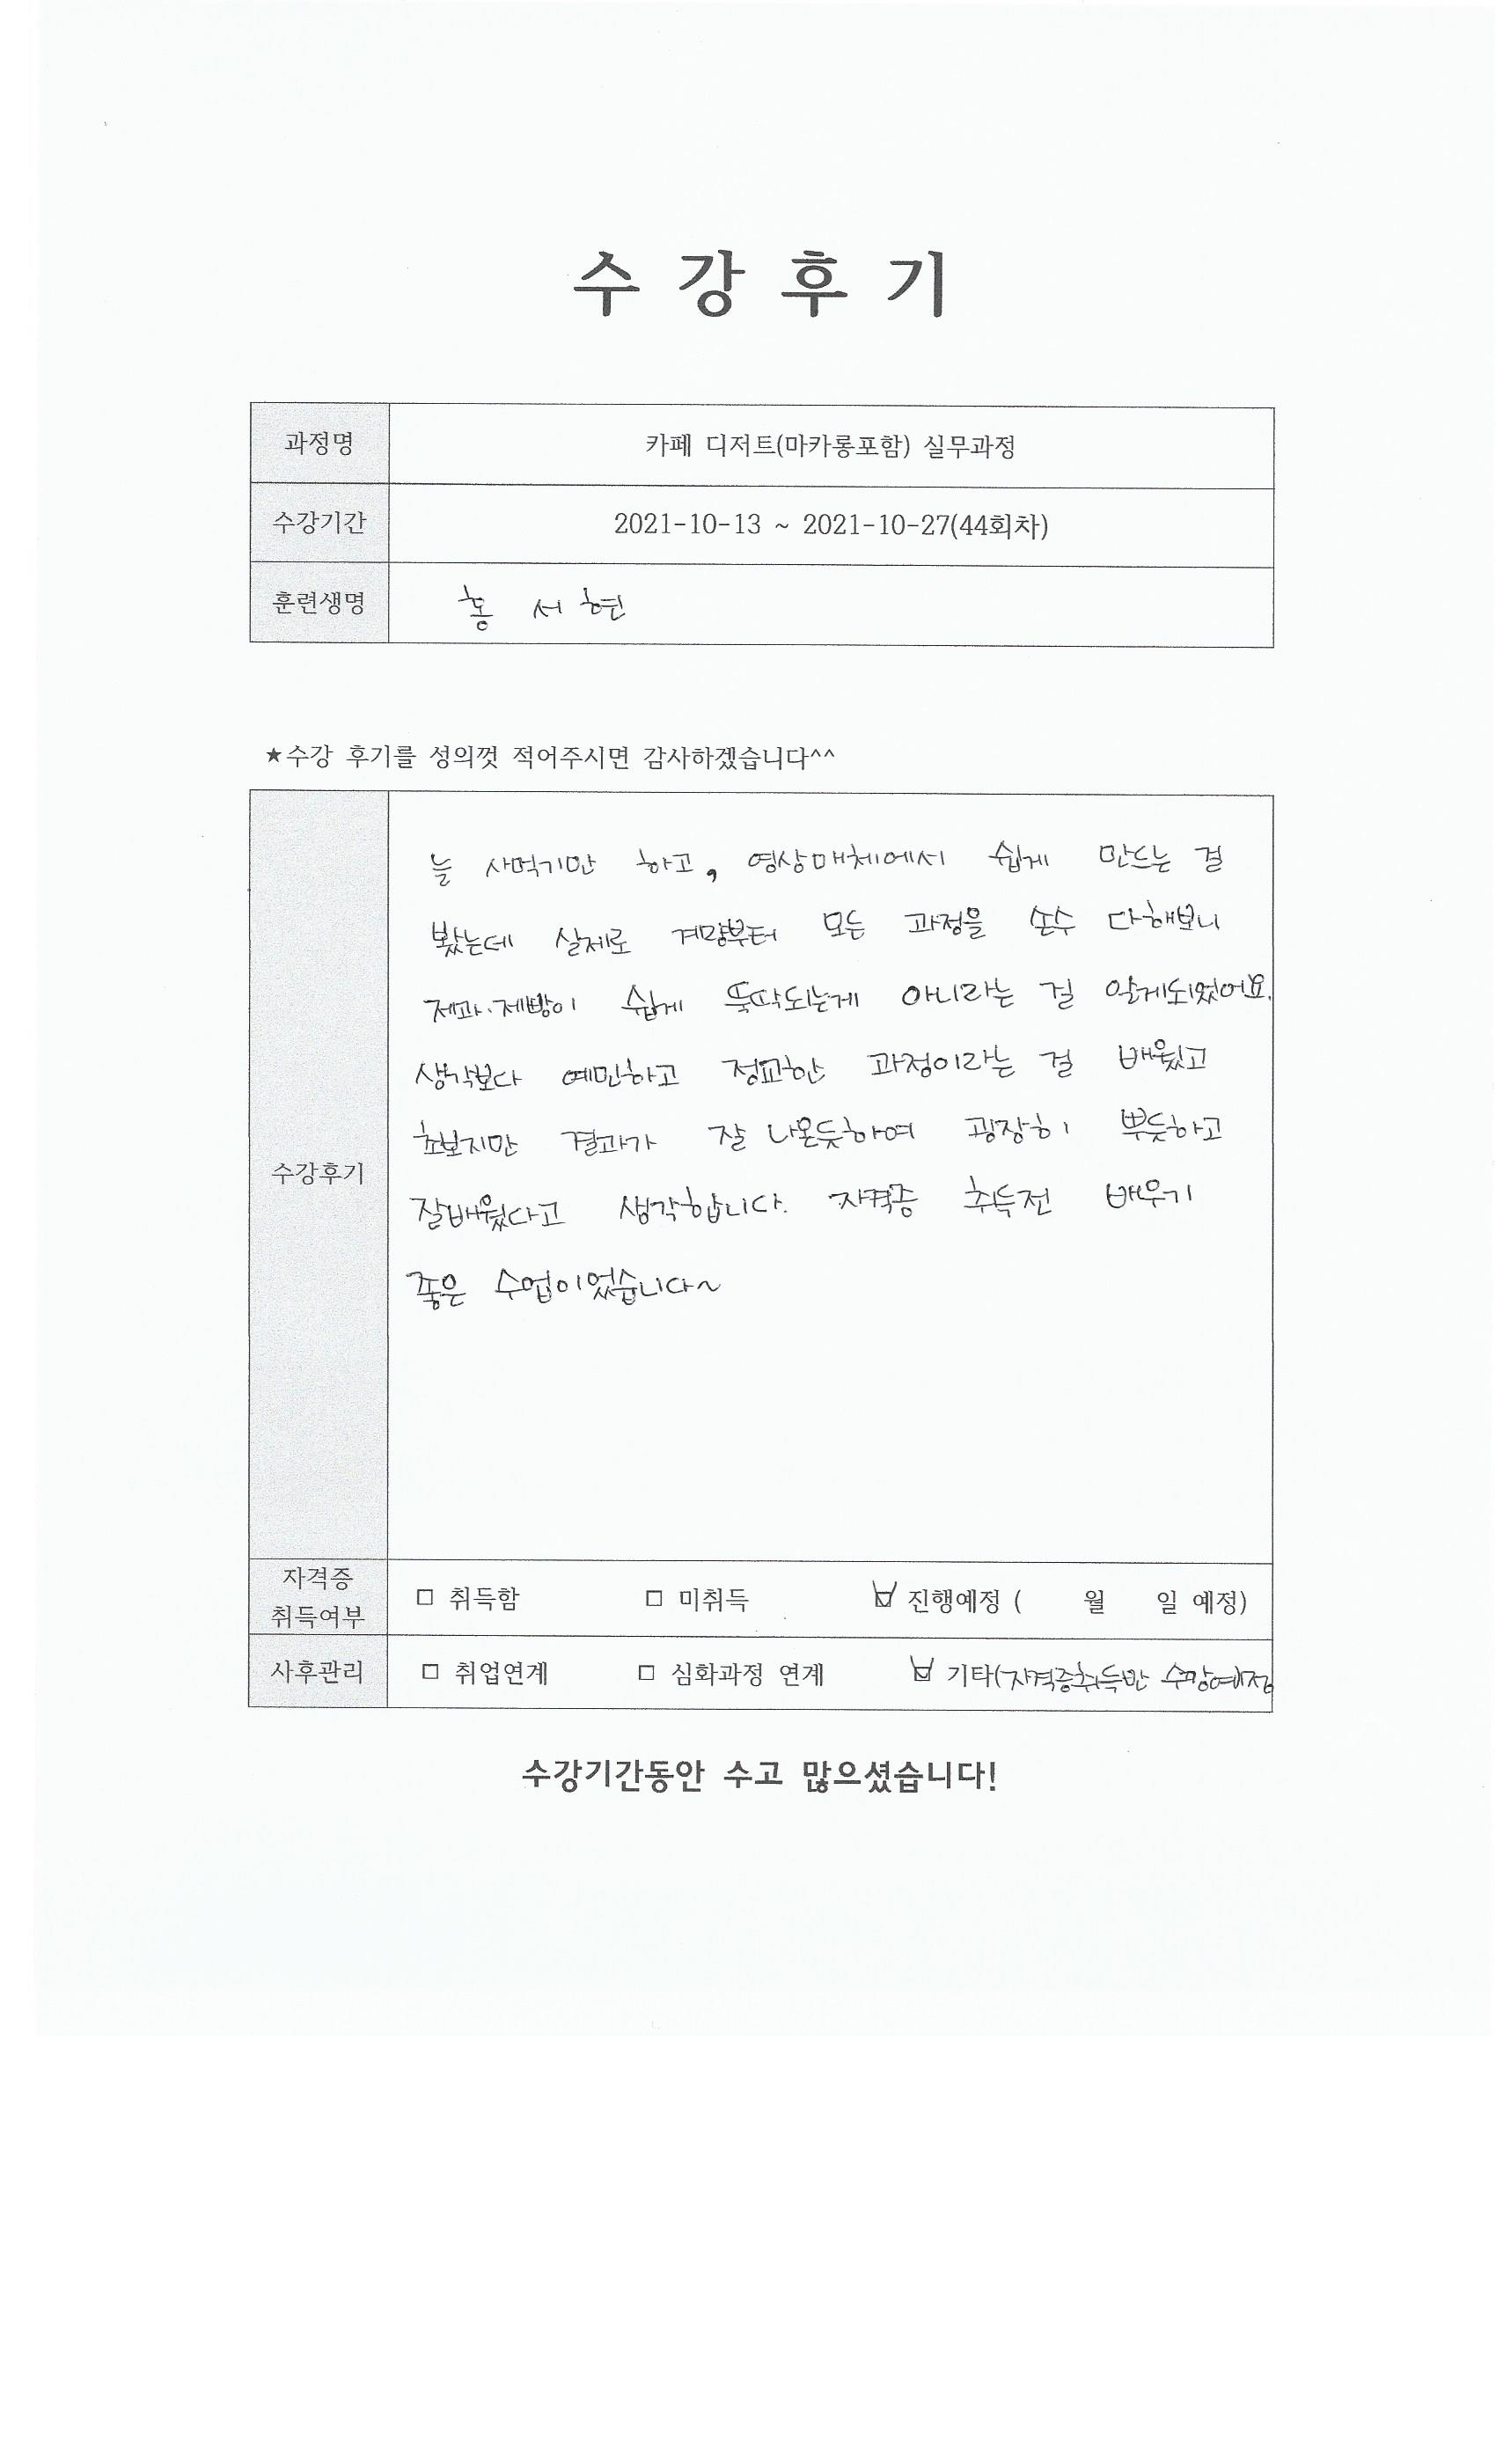 수강후기
과정명 카페 디저트(마카롱포함) 실무과정
수강기간 2021-10-13 ~ 2021-10-27(44회차)
훈련생명 홍 서 현
★수강 후기를 성의껏 적어주시면 감사하겠습니다^^
수강후기
늘 사먹기만 하고, 영상매체에서 쉽게 만드는 걸
봤는데 실제로 계량부터 모든 과정을 손수 다해보니
제과·제빵이 쉽게 뚝딱되는게 아니라는 걸 알게되었어요.
생각보다 예민하고 정교한 과정이라는 걸 배웠고
초보지만 결과가 잘 나온듯하여 굉장히 뿌듯하고
잘배웠다고 생각합니다. 자격증 취득전 배우기
좋은 수업이었습니다~
자격증 취득여부 □ 취득함 □ 미취득 ☑ 진행예정 ( 월 일 예정)
사후관리 □ 취업연계 □ 심화과정 연계 ☑ 기타(자격증취득반 수강예정
수강기간동안 수고 많으셨습니다!